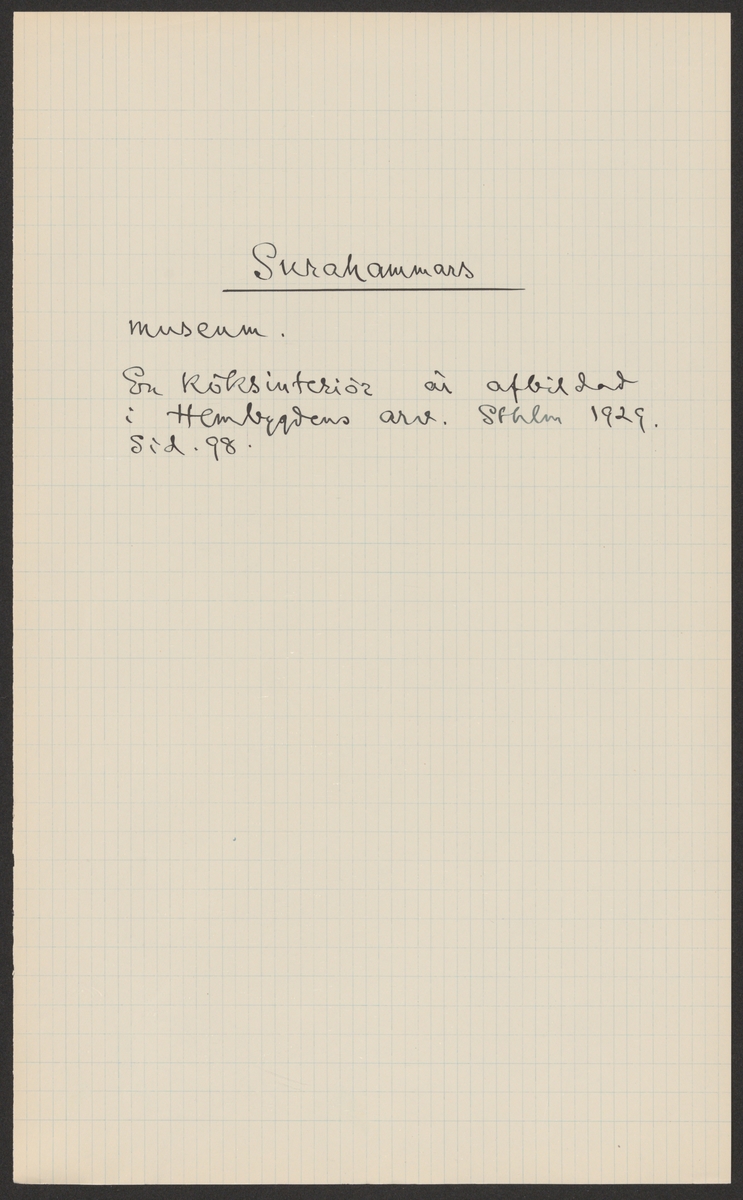 Surahammars
museum.
En köksinteriör är afbildad
i Hembygdens arv. Sthlm 1929.
Sid. 98.